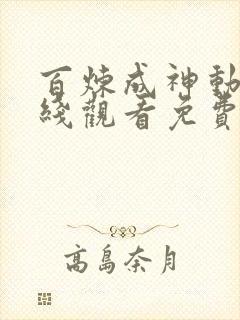 百炼成神動
綫觀看免費
高島奈月